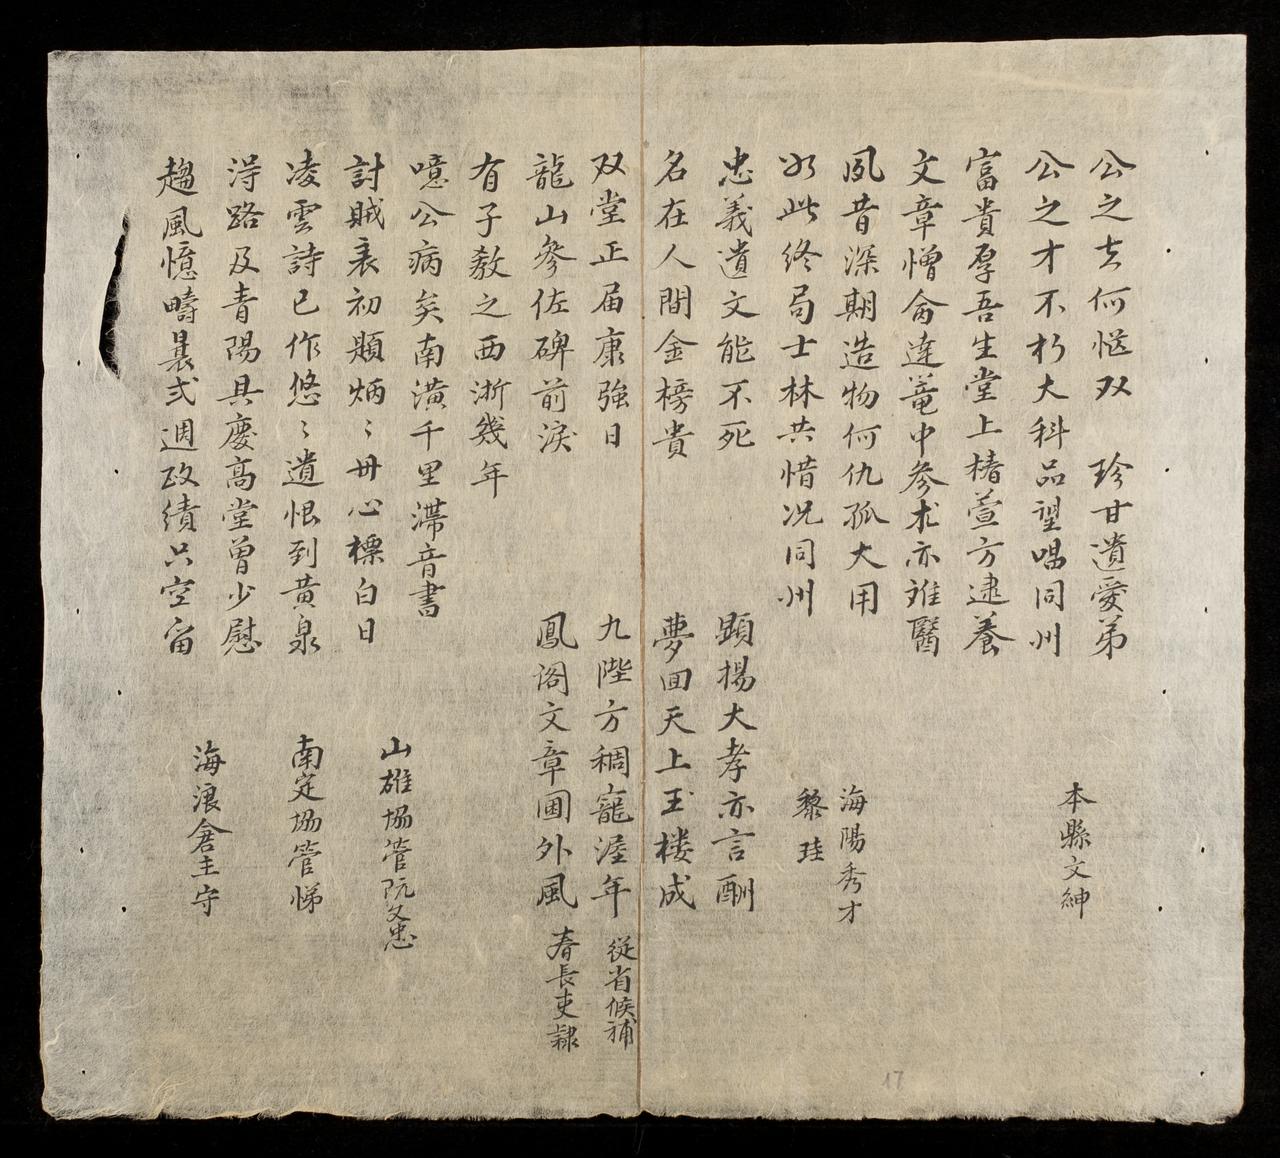 公之去何惱双　珍甘遺愛弟
公之才不朽大科品望唱同州
本縣文紳
富貴厚吾生堂上椿萱方逮養
文章憎命達篭中參朮亦难醫
夙昔深期造物何仇孤大用
如此終局士林共惜况同州
海陽秀才
黎珪
忠義遺文能不死　顕揚大孝亦言酬
名在人間金榜貴　夢囬天上玉楼成
双堂正届康強日　九陛方稠寵渥年
從省候補
龍山參佐碑前淚　鳳阁文章圃外風
春長吏隸
有子教之西浙幾年
噫公病矣南潢千里滞音書
討賊表初題炳〻丹心標白日
山雄協管阮文忠
凌雲詩已作悠〻遺恨到黄泉
南定協管悌
淂路及青陽具慶髙堂曾少慰
趨風憶疇曩弍週政績只空留
海浪倉主守